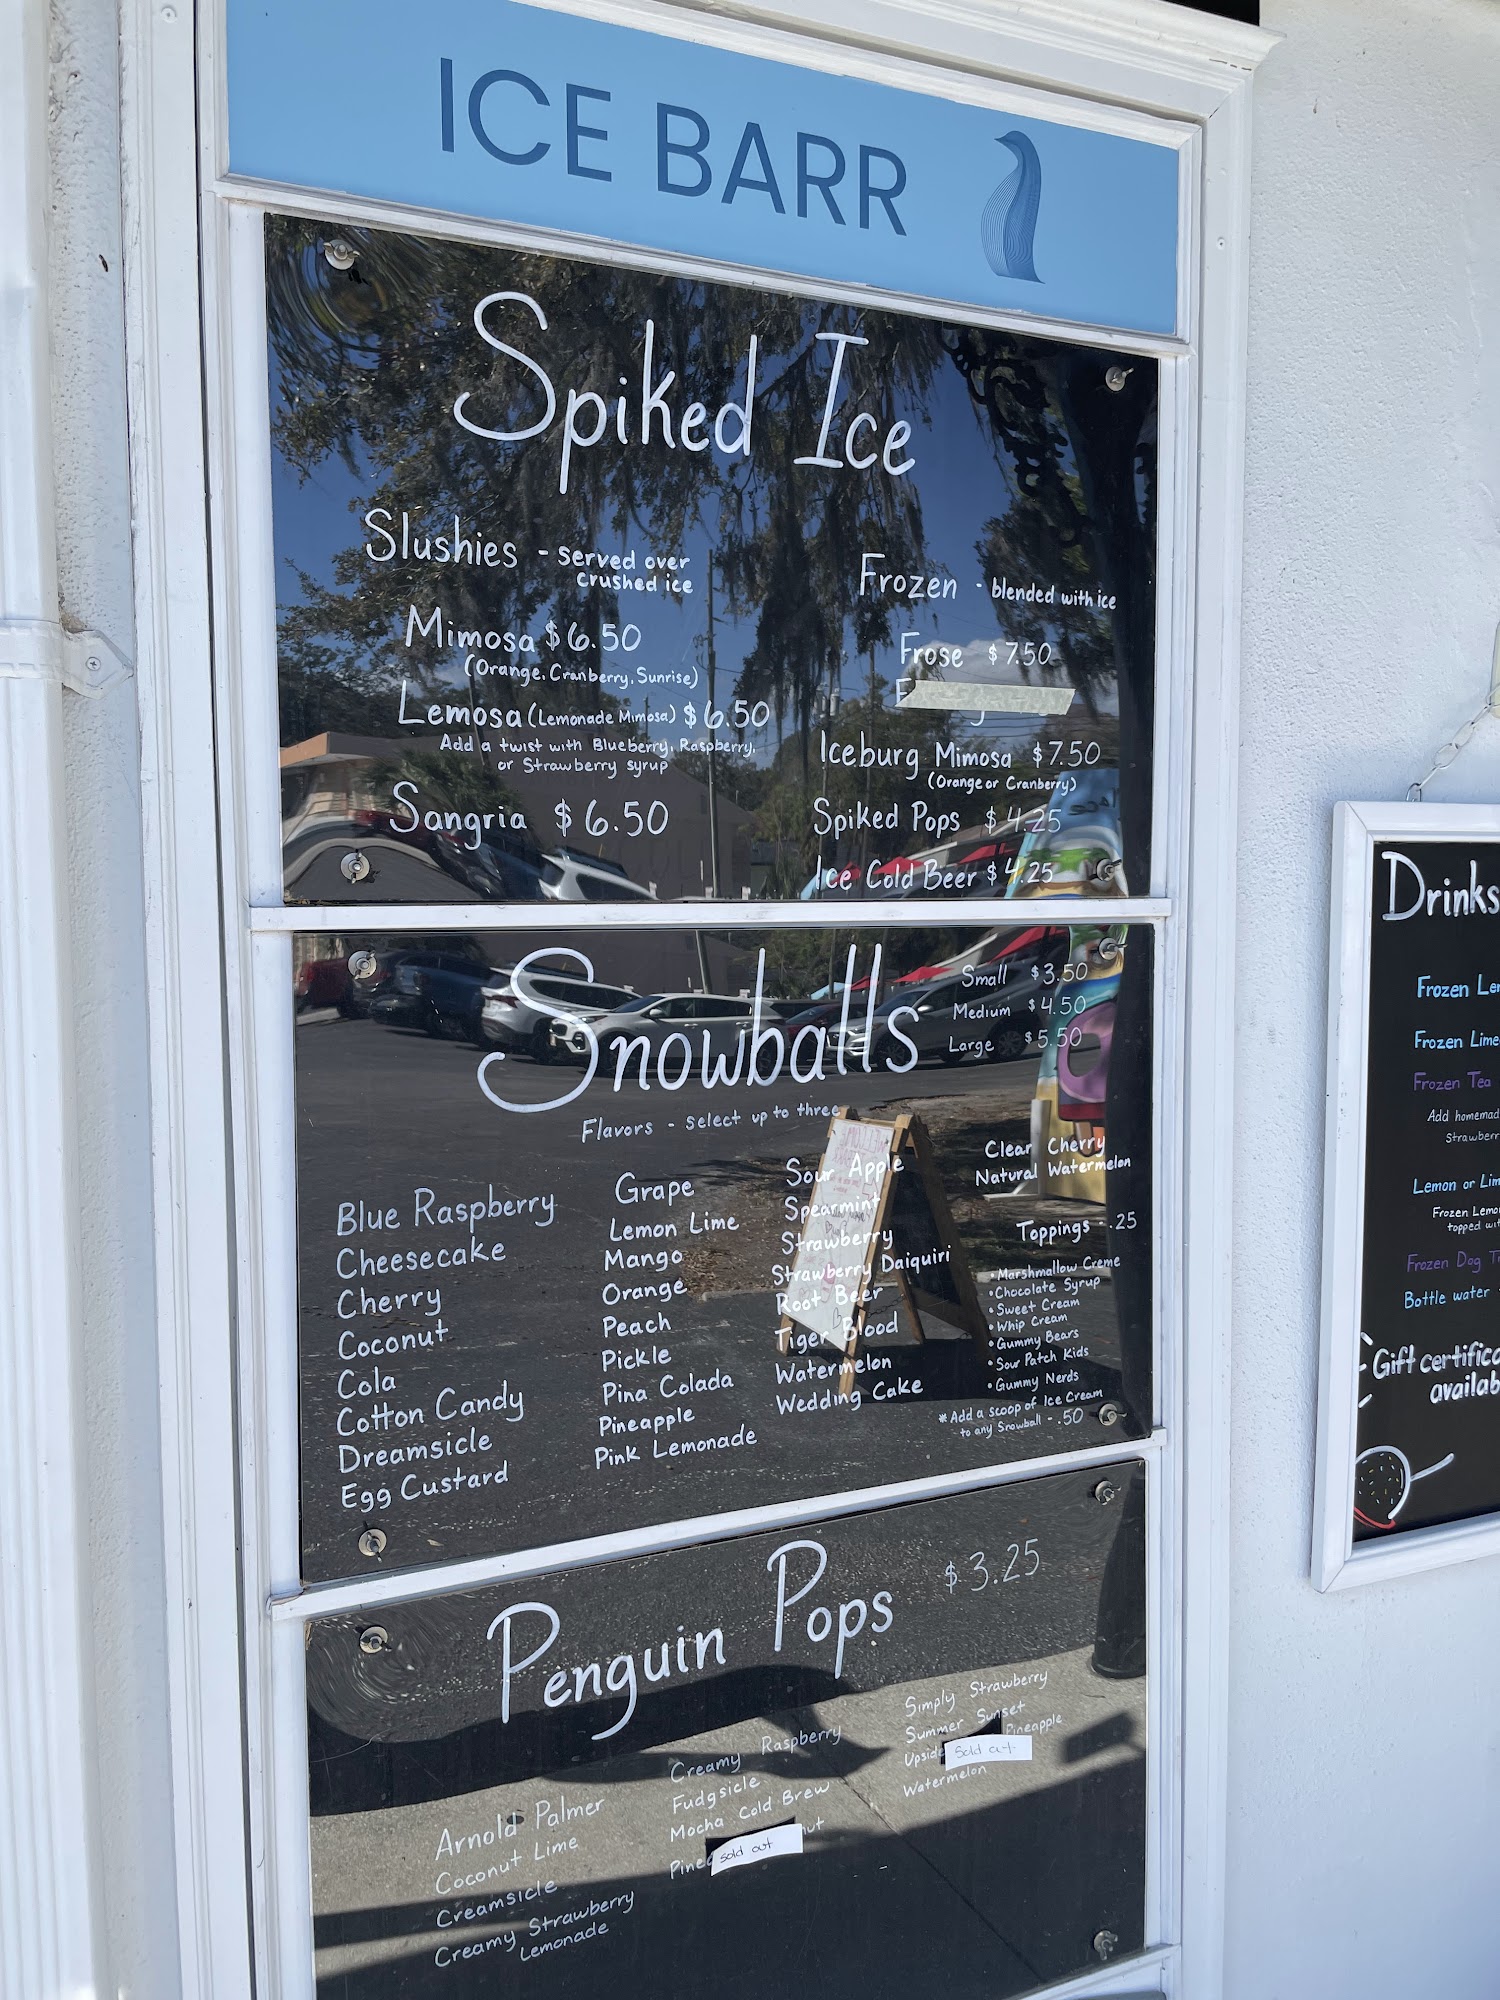 ICE BARR
Spiked Ice
Slushies - served over
crushed ice
Mimosa $6.50
(Orange, Cranberry, Sunrise)
Lemosa (Lemonade Mimosa) $6.50
Add a twist with Blueberry, Raspberry,
or Strawberry syrup
Sangria $6.50
Frozen - blended with ice
Frose $7.50
Iceburg Mimosa $7.50
(Orange or Cranberry)
Spiked Pops $4.25
Ice Cold Beer $4.25
Snowballs
Small $3.50
Medium $4.50
Large $5.50
Flavors - select up to three
Blue Raspberry
Cheesecake
Cherry
Coconut
Cola
Cotton Candy
Dreamsicle
Egg Custard
Grape
Lemon Lime
Mango
Orange
Peach
Pickle
Pina Colada
Pineapple
Pink Lemonade
Sour Apple
Spearmint
Strawberry
Strawberry Daiquiri
Root Beer
Tiger Blood
Watermelon
Wedding Cake
Clear Cherry
Natural Watermelon
Toppings - .25
• Marshmallow Creme
• Chocolate Syrup
• Sweet Cream
• Whip Cream
• Gummy Bears
• Sour Patch Kids
• Gummy Nerds
* Add a scoop of Ice Cream
to any Snowball - .50
Penguin Pops $3.25
Arnold Palmer
Coconut Lime
Creamsicle
Creamy Strawberry
Lemonade
Creamy Raspberry
Fudgsicle
Mocha Cold Brew
sold out
Simply Strawberry
Summer Sunset
Upside Sold out Pineapple
Watermelon
Drinks
Frozen
Frozen Lime
Frozen Tea
Add
Lemon or
Frozen
topped
Frozen Dog
Bottle water
Gift